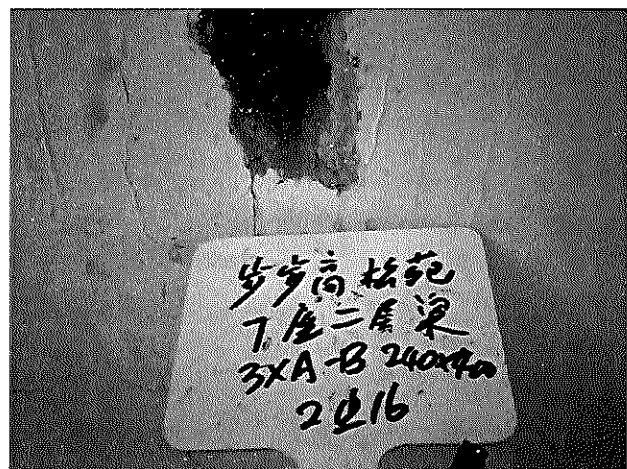 步步高松苑
7座二层梁
3XA-B 240x400
2⏀16